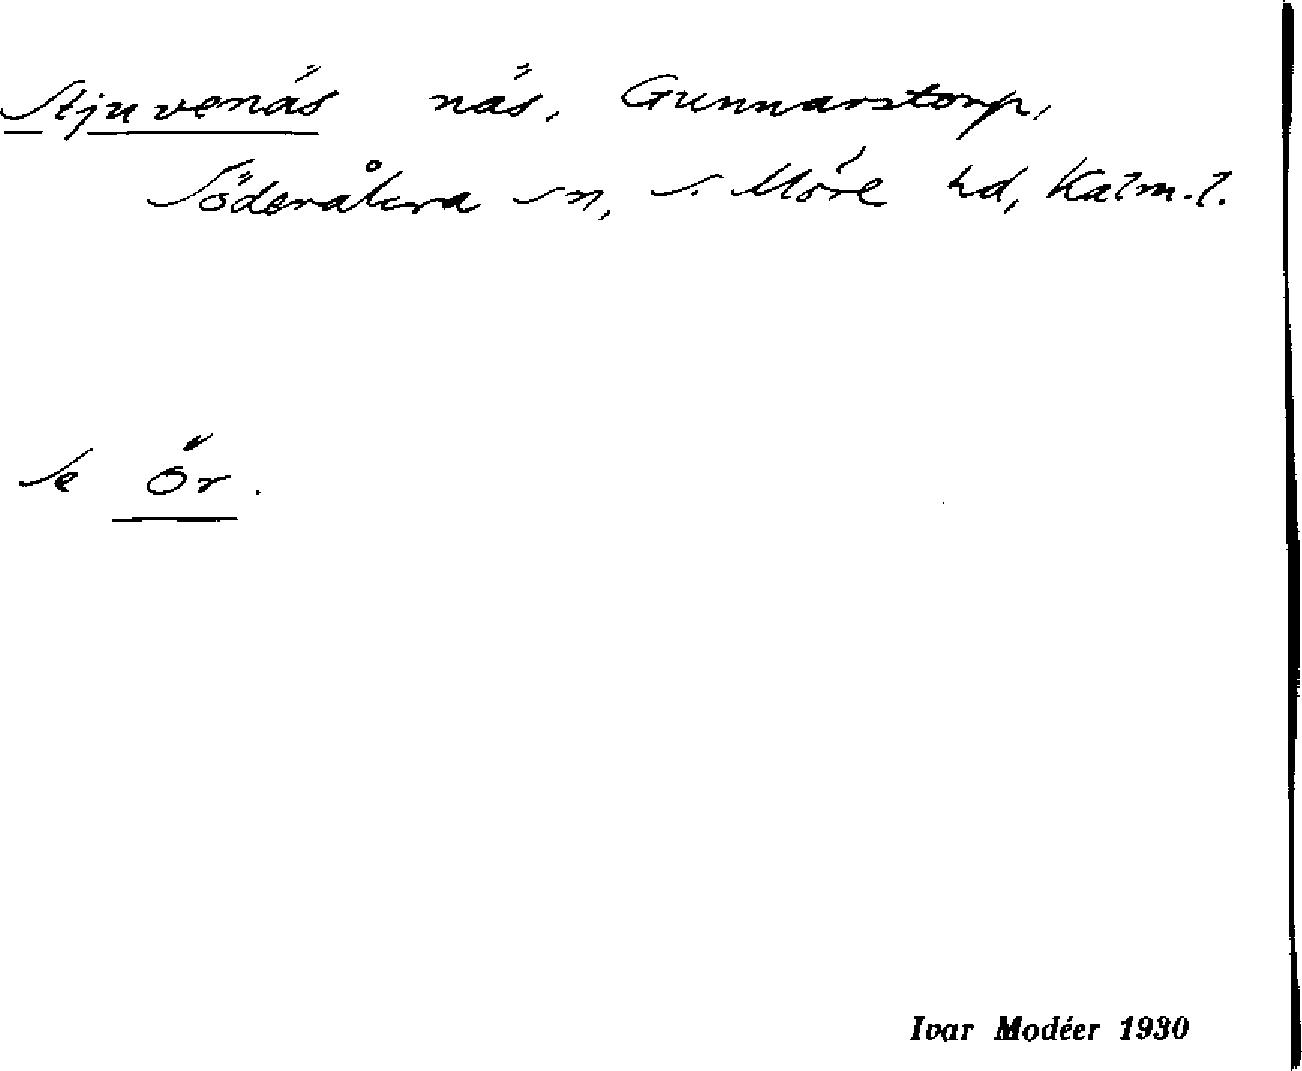 Stjuvenäs näs, Gunnarstorp,
Söderåkra sn, S. Möre hd, Kalm. l.
Se Ör.
Ivar Modéer 1930